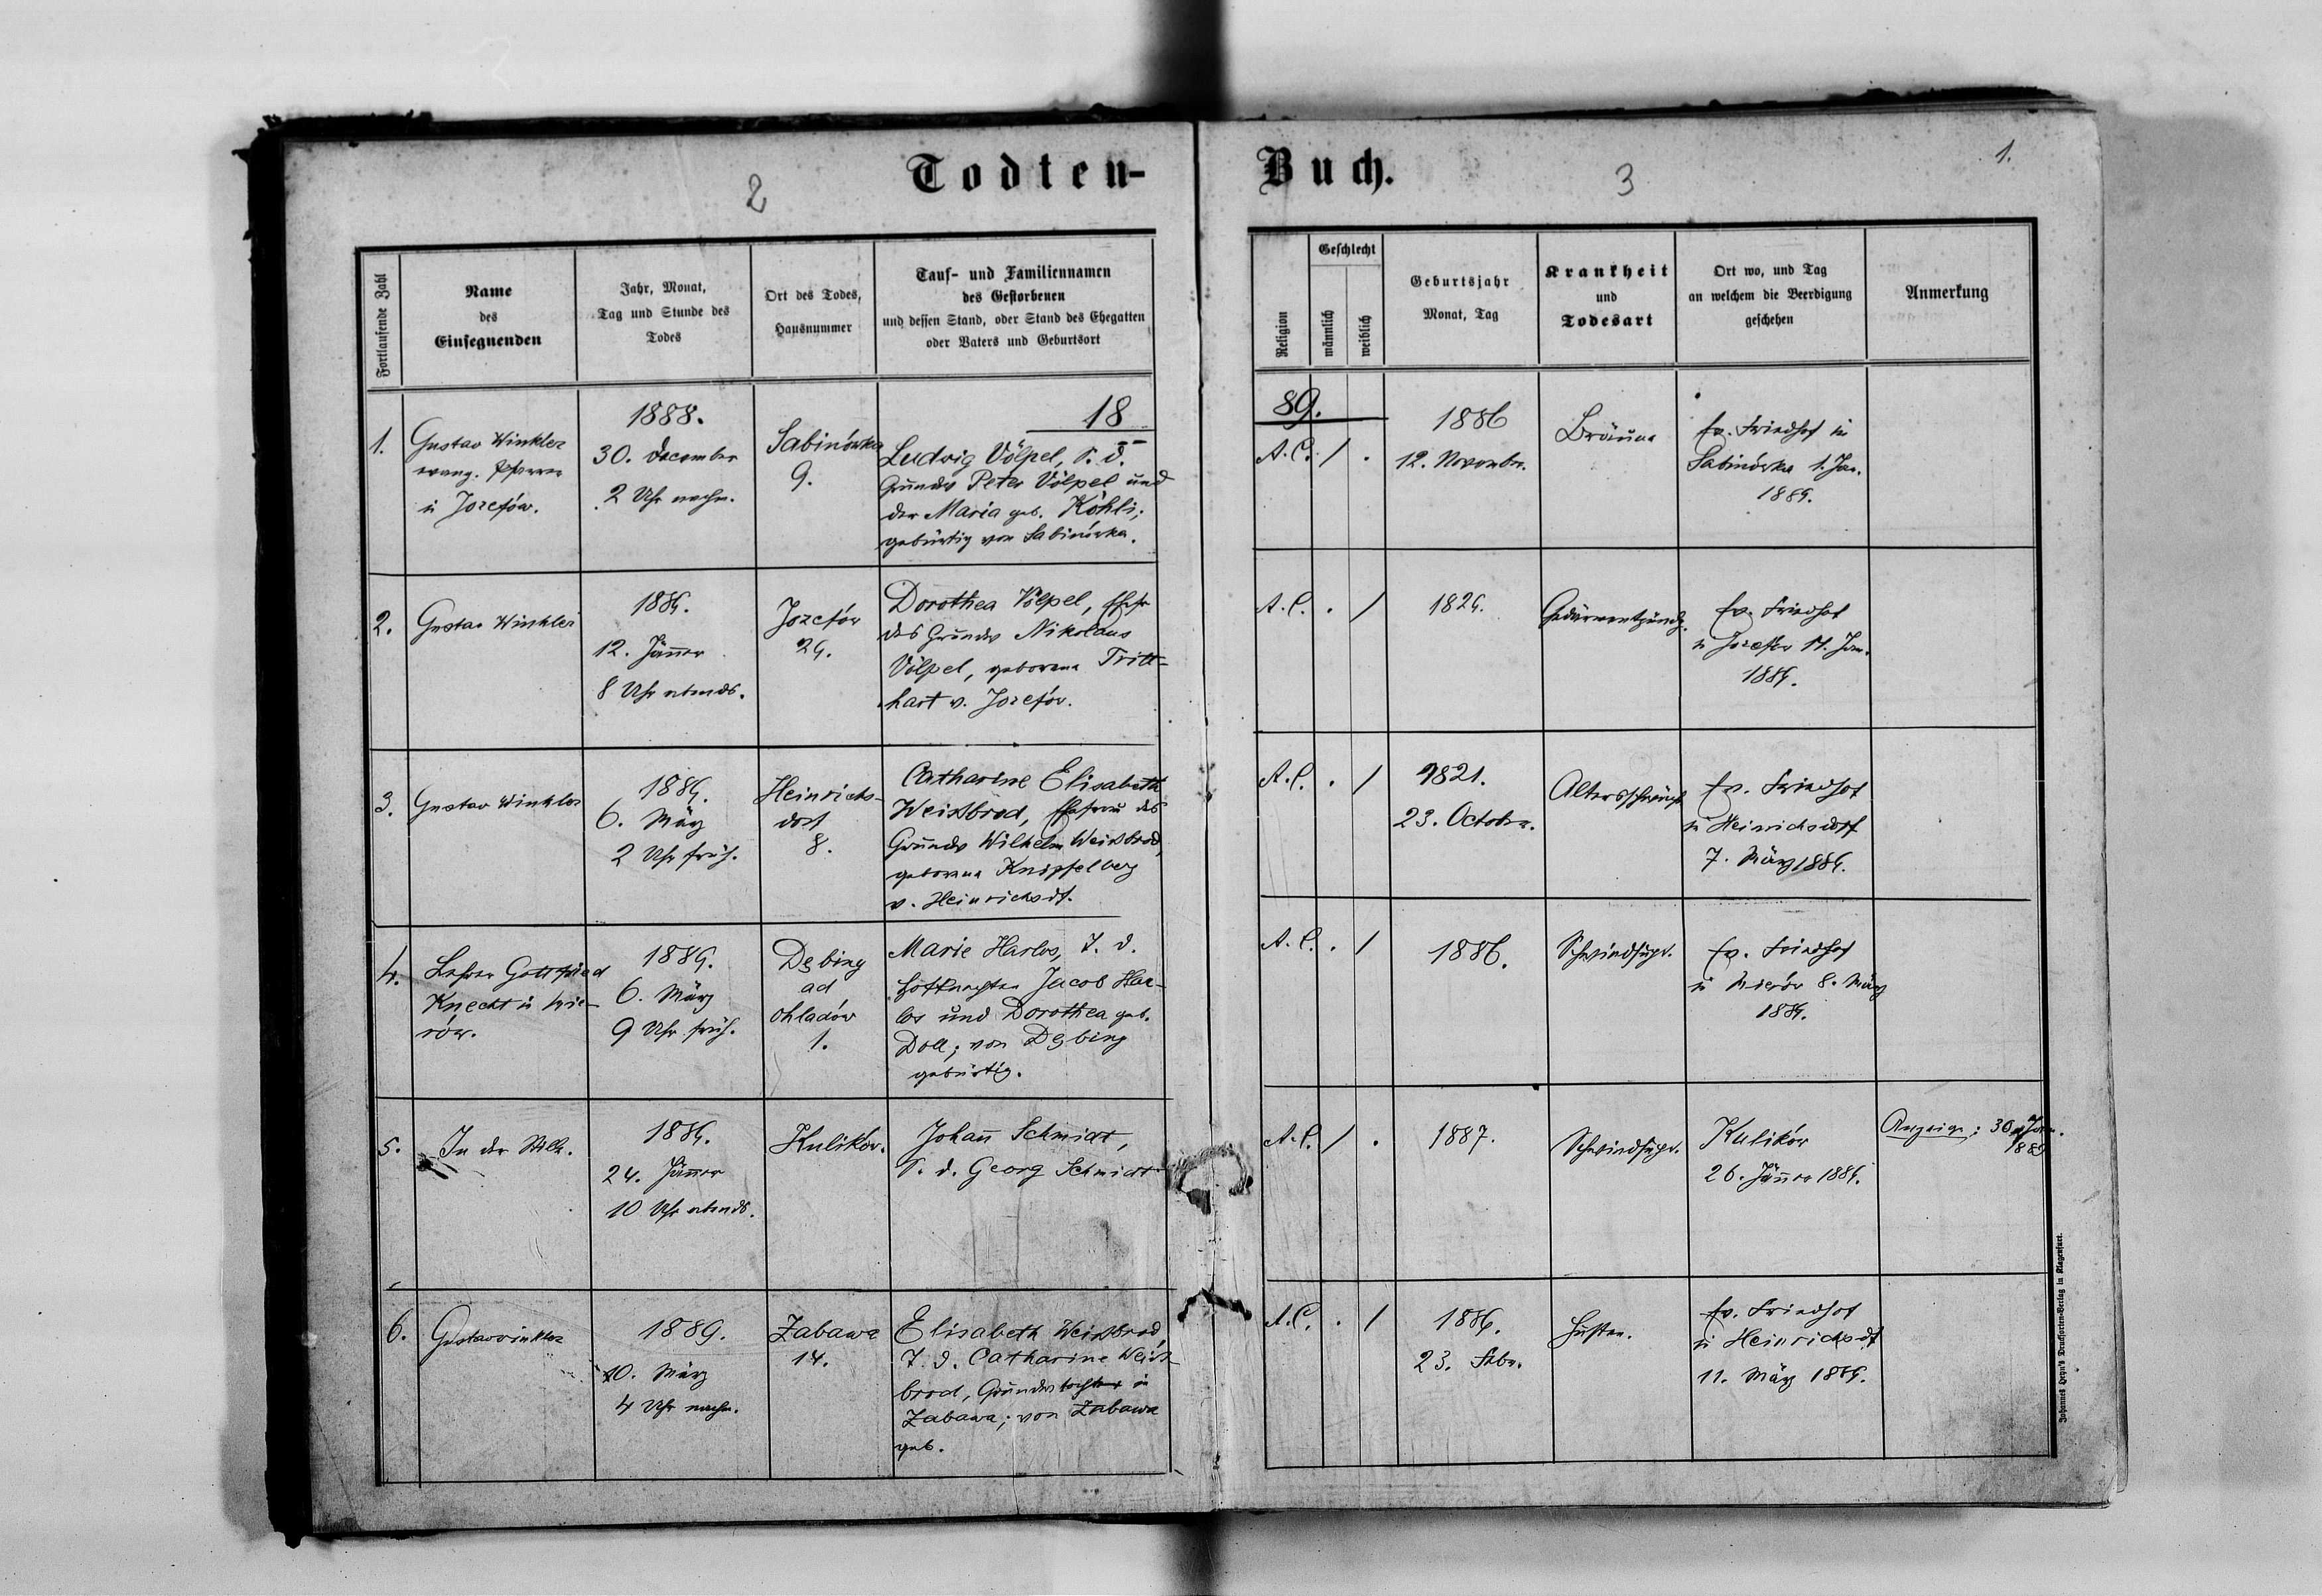 2
Todten-
Fortlaufende Zahl
Name
des
Einsegnenden
Jahr, Monat,
Tag und Stunde des
Todes
Ort des Todes,
Hausnummer
Tauf- und Familiennamen
des Gestorbenen
und dessen Stand, oder Stand des Ehegatten
oder Vaters und Geburtsort
18
1.
Gustav Winkler
evang. Pfarrer
in Jozefów.
1888.
30. December
2 Uhr nachm.
Sabinówka
9.
Ludwig Völpel, S. d.
Grundw Peter Völpel und
der Maria geb. Köhli;
gebürtig von Sabinówka.
2.
Gustav Winkler
1889.
12. Jänner
8 Uhr abends.
Jozefów
29.
Dorothea Völpel, Ehefr
des Grundw Nikolaus
Völpel, geborene Tritt-
hart v. Jozefów.
3.
Gustav Winkler
1889.
6. März
2 Uhr früh.
Heinrichs-
dorf
8.
Catharine Elisabeth
Weissbrod, Ehefrau des
Grundw Wilhelm Weissbrod,
geborene Knipfelberg
v. Heinrichsdf.
4.
Lehrer Gottfried
Knecht in Mie-
rów.
1889.
6. März
9 Uhr früh.
Dębiny
ad
Ohladów
1.
Marie Harlos, T. d.
Jacob Har-
los und Dorothea geb.
Doll; von Dębiny
gebürtig.
5.
In der
1889.
24. Jänner
10 Uhr abends.
Kulików.
Johann Schmidt,
S. d. Georg Schmidt
6.
Gustav Winkler
1889.
10. März
4 Uhr nachm.
Zabawa
14.
Elisabeth Weissbrod,
T. d. Catharine Weiss-
brod, Grundwtochter in
Zabawa; von Zabawa
geb.
Buch.
3
1.
Religion
Geschlecht
männlich
weiblich
Geburtsjahr
Monat, Tag
Krankheit
und
Todesart
Ort wo, und Tag
an welchem die Beerdigung
geschehen
Anmerkung
89.
A. C. / .
1886
12. Novembr.
Bräune
Ev. Friedhof in
Sabinówka 1. Jan.
1889.
A. C. . /
1829.
Gedärmentzündg.
Ev. Friedhof
in Jozefów 14. Jan.
1889.
A. C. . /
1821.
23. Octobr.
Altersschwäche
Ev. Friedhof
in Heinrichsdorf
7. März 1889.
A. C. . /
1886.
Schwindsucht.
Ev. Friedhof
in Mierów 8. März
1889.
A. C. / .
1887.
Schwindsucht.
Kulików
26. Jänner 1889.
Anzeige: 30. Jan.
1889
A. C. . /
1889.
23. Febr.
Husten.
Ev. Friedhof
in Heinrichsdf
11. März 1889.
Johannes Heyn's Drucksorten-Verlag in Klagenfurt.